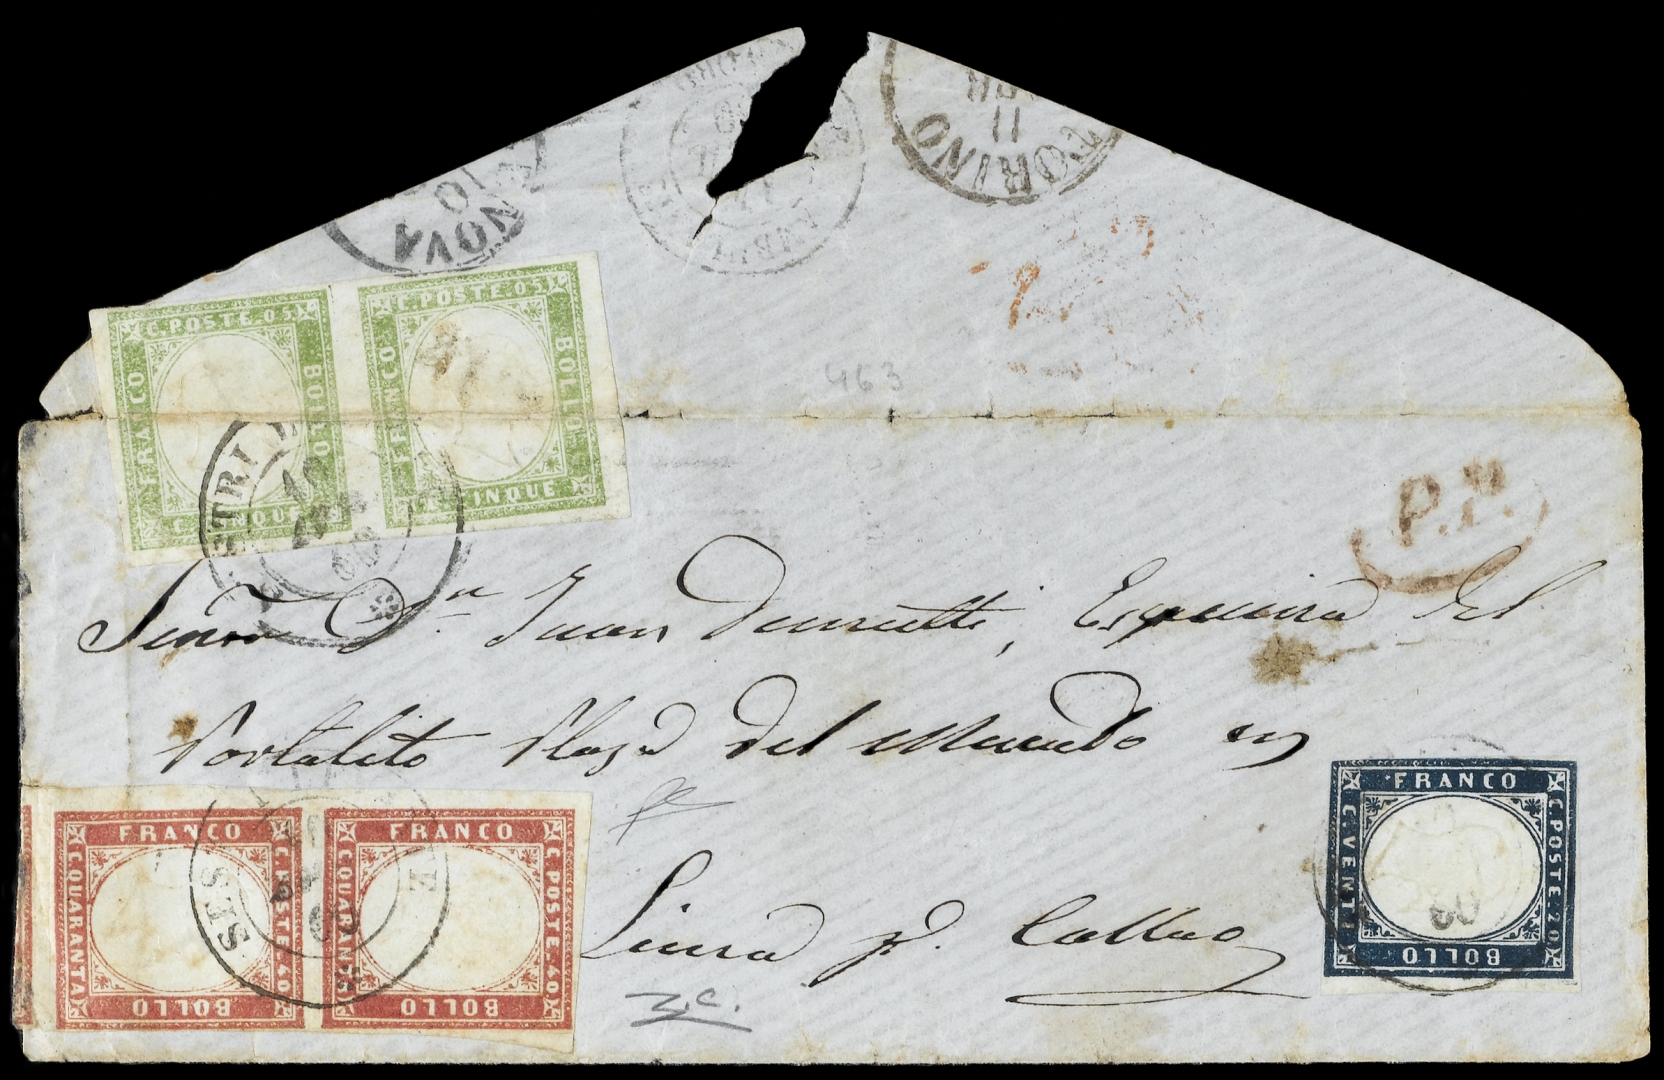 TORINO
11
10
NOVA
C. POSTE. 05
FRANCO
BOLLO
C. CINQUE
C. POSTE. 05
FRANCO
BOLLO
CINQUE
463
P.P.
10
60
Señor Dn Juan
Esquina del
Portalito Plaza del Mundo en
Lima pr. Callao
FRANCO
C. QUARANTA
C. POSTE. 40
BOLLO
FRANCO
C. QUARANTA
C. POSTE. 40
BOLLO
60
FRANCO
C. VENTI
C. POSTE. 20
BOLLO
60